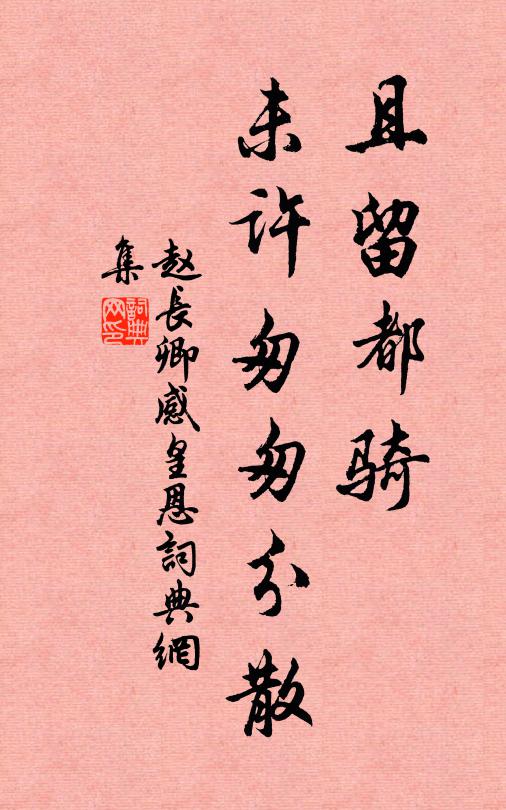 且留都骑
未许匆匆分散
赵長卿感皇恩詞典網
集
詞典网印